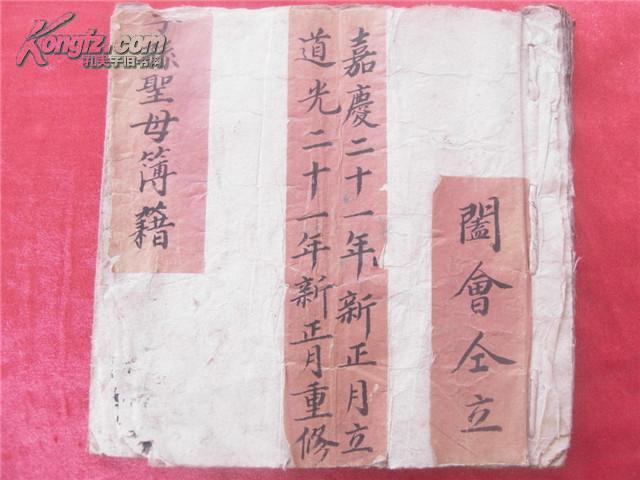 闔會仝立
嘉慶二十一年新正月立
道光二十一年新正月重修
聖母簿藉
Kongfz.com
孔夫子旧书网